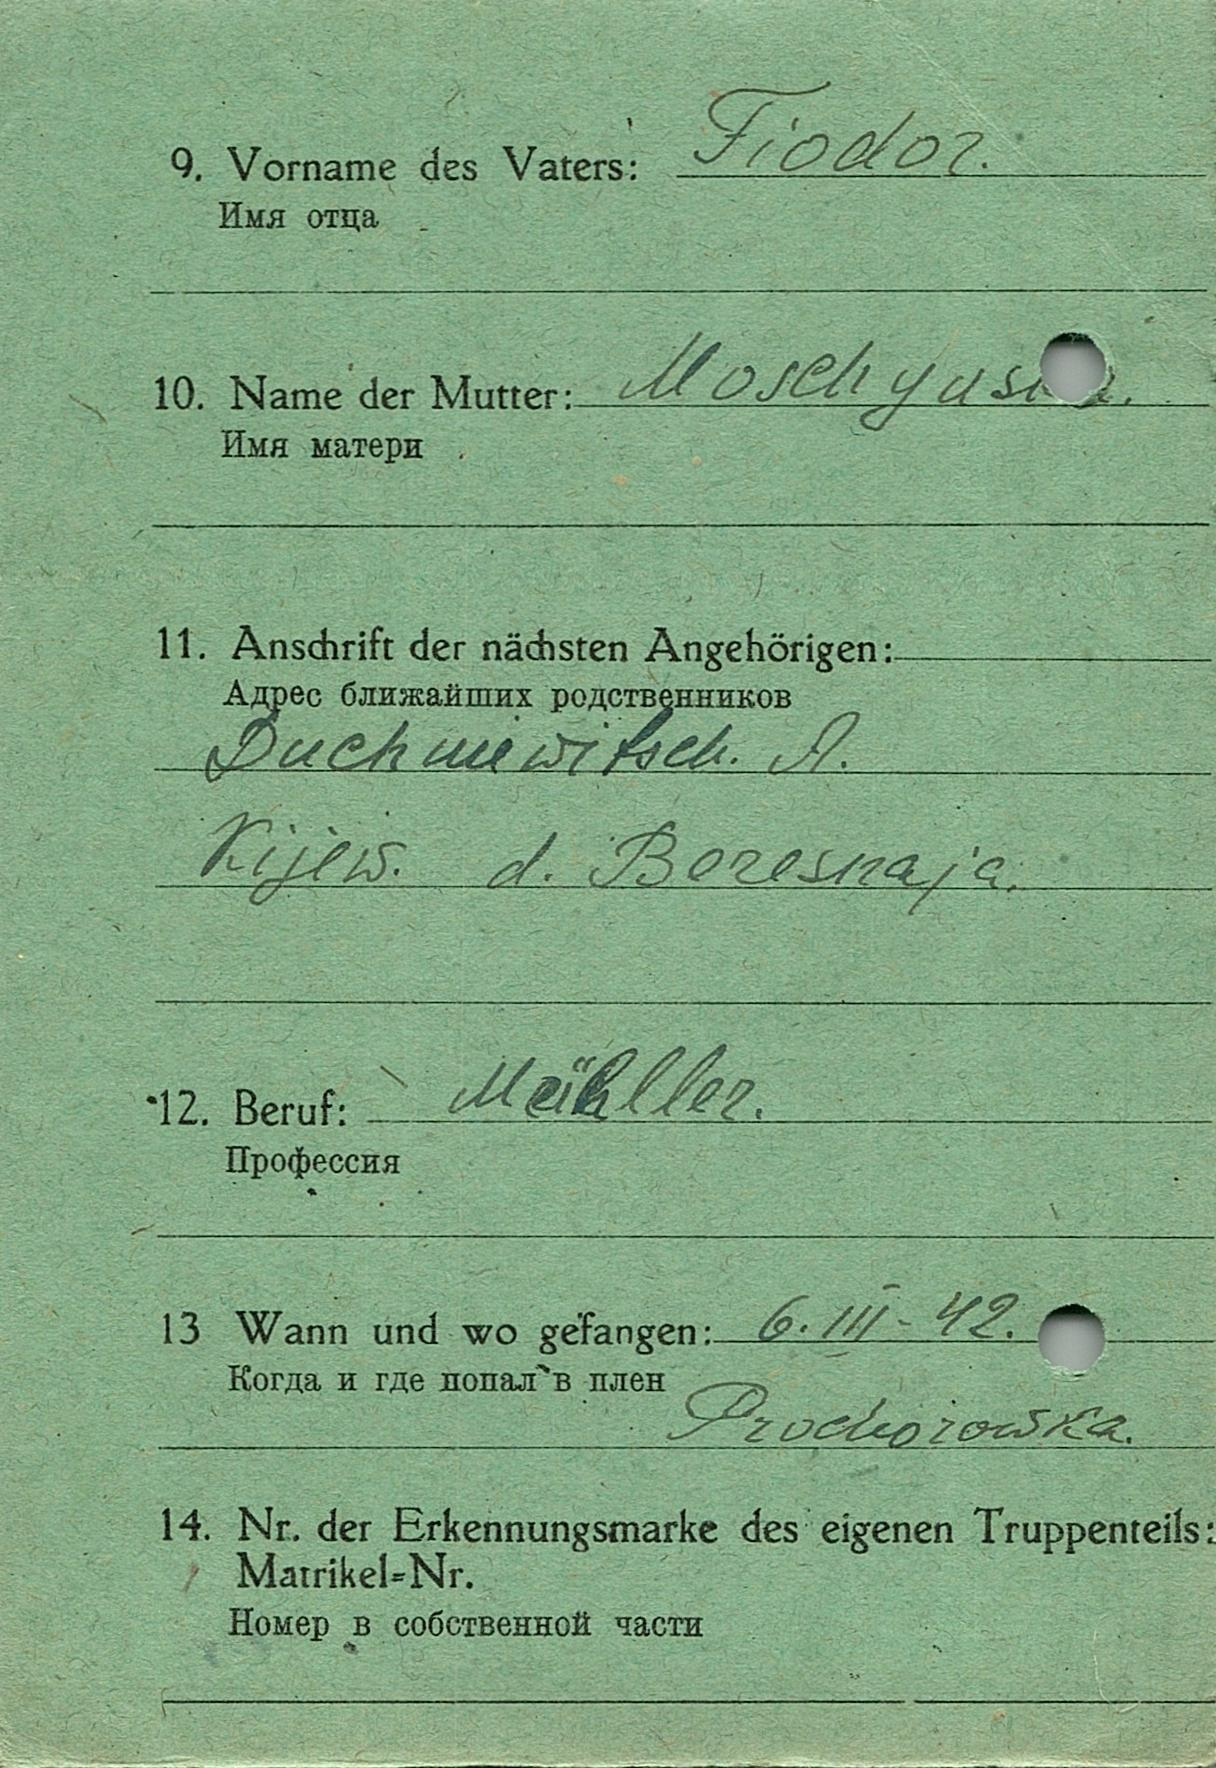 9. Vorname des Vaters: Fiodor.
Имя отца
10. Name der Mutter:
Имя матери
11. Anschrift der nächsten Angehörigen:
Адрес ближайших родственников
Duchnewitsch. A.
Kijew. d. Boresnaja.
12. Beruf: Mühller.
Профессия
13 Wann und wo gefangen: 6. III - 42.
Когда и где попал в плен
Prochorowska.
14. Nr. der Erkennungsmarke des eigenen Truppenteils:
Matrikel-Nr.
Номер в собственной части